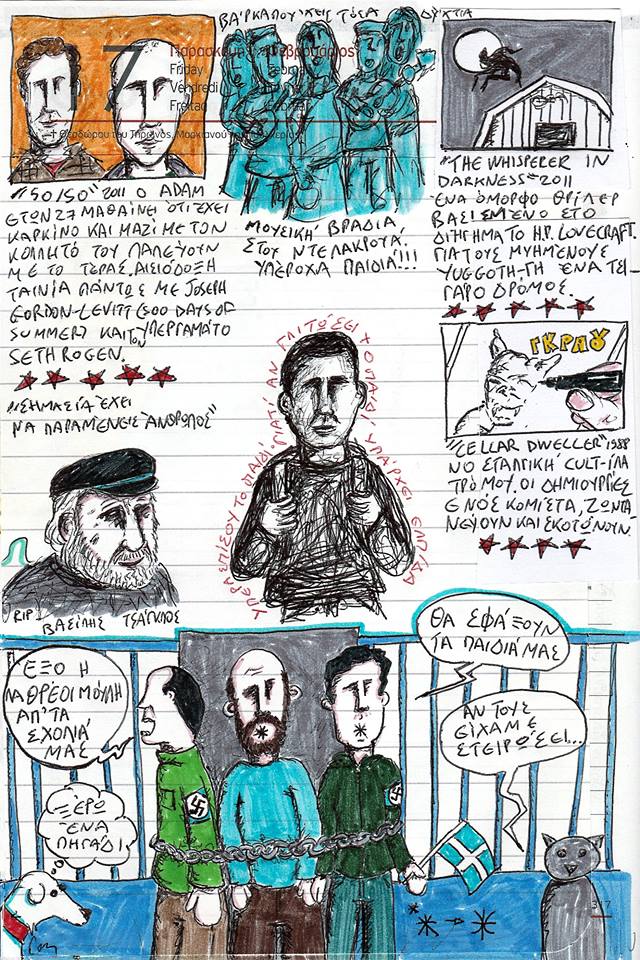 17
Παρασκευή
Friday
Vendredi
Freitag
† Θεοδώρου του Τήρωνος, Μαρκιανού
"50/50" 2011 Ο ADAM
ΕΤΩΝ 27 ΜΑΘΑΙΝΕΙ ΌΤΙ ΕΧΕΙ
ΚΑΡΚΙΝΟ ΚΑΙ ΜΑΖΙ ΜΕ ΤΟΝ
ΚΟΛΛΗΤΟ ΤΟΥ ΠΑΛΕΥΟΥΝ
ΜΕ ΤΟ ΤΕΡΑΣ. ΑΙΣΙΟΔΟΞΗ
ΤΑΙΝΙΑ ΠΑΝΤΩΣ ΜΕ JOSEPH
GORDON-LEVITT (500 DAYS OF
SUMMER) ΚΑΙ ΤΟΝ ΥΠΕΡΓΑΜΑΤΟ
SETH ROGEN.
"ΣΗΜΑΣΙΑ ΈΧΕΙ
ΝΑ ΠΑΡΑΜΕΝΕΙΣ ΆΝΘΡΩΠΟΣ"
ΒΆΡΚΑ ΠΟΥ ΧΕΙΣ ΤΌΣΑ ΔΊΧΤΙΑ
ΜΟΥΣΙΚΗ ΒΡΑΔΙΑ
ΣΤΟΥ ΝΤΕΛΑΚΡΟΥΑ.
ΥΠΕΡΟΧΑ ΠΑΙΔΙΑ!!!
"THE WHISPERER IN
DARKNESS" 2011
ΕΝΑ ΌΜΟΡΦΟ ΘΡΙΛΕΡ
ΒΑΣΙΣΜΕΝΟ ΣΤΟ
ΔΙΗΓΗΜΑ ΤΟΥ H.P. LOVECRAFT.
ΓΙΑ ΤΟΥΣ ΜΥΗΜΕΝΟΥΣ
YUGGOTH-ΓΗ ΈΝΑ ΤΣΙ
ΓΑΡΟ ΔΡΌΜΟΣ.
ΓΚΡΑΟΥ
"CELLAR DWELLER" 1988
ΝΟΣΤΑΛΓΙΚΗ CULT-ΙΛΑ
ΤΡΟΜΟΥ. ΟΙ ΔΗΜΙΟΥΡΓΙΕΣ
ΕΝΌΣ ΚΟΜΙΣΤΑ, ΖΩΝΤΑ
ΝΕΥΟΥΝ ΚΑΙ ΣΚΟΤΩΝΟΥΝ.
ΥΠΕΡΑΣΠΙΣΟΥ ΤΟ ΠΑΙΔΙ ΓΙΑΤΙ ΑΝ ΓΛΙΤΏΣΕΙ ΤΟ ΠΑΙΔΙ ΥΠΑΡΧΕΙ ΕΛΠΙΔΑ
RIP
ΒΑΣΙΛΗΣ ΤΣΑΓΚΛΟΣ
ΕΞΟ Η
ΝΑΘΡΕΟΙ ΜΟΥΛΗ
ΑΠ' ΤΑ
ΣΧΟΛΙΑ
ΜΑΣ
ΞΈΡΩ
ΈΝΑ
ΠΗΓΑΔΙ
ΘΑ ΣΦΑΞΟΥΝ
ΤΑ ΠΑΙΔΙΑ ΜΑΣ
ΑΝ ΤΟΥΣ
ΕΙΧΑΜΕ
ΣΤΕΙΡΩΣΕΙ...
317